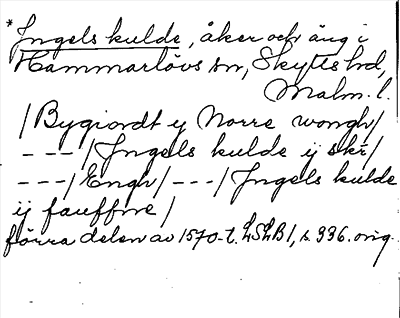 *Ingels kulde, åker och äng i
Hammarlövs sn, Skytts hd,
Malm. l.
/Bygiordt ij Norre wongh/
---/Ingels kulde ij skr/
---/Engh/---/Ingels kulde
ij fauffne/
förra delen av 1570-t. LSLB 1, s. 936. orig.